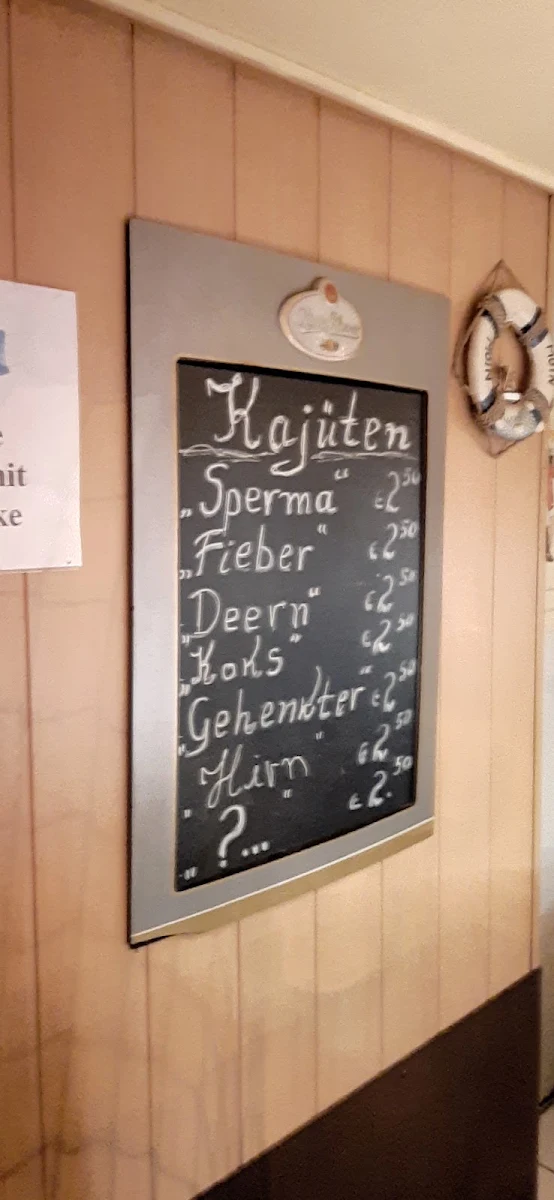 e
mit
ke
Kajüten
„Sperma“ € 2⁵⁰
„Fieber“ € 2⁵⁰
„Deern“ € 2⁵⁰
„Koks“ € 2⁵⁰
„Gehenkter“ € 2⁵⁰
„Hirn“ € 2⁵⁰
„?...“ € 2.⁵⁰